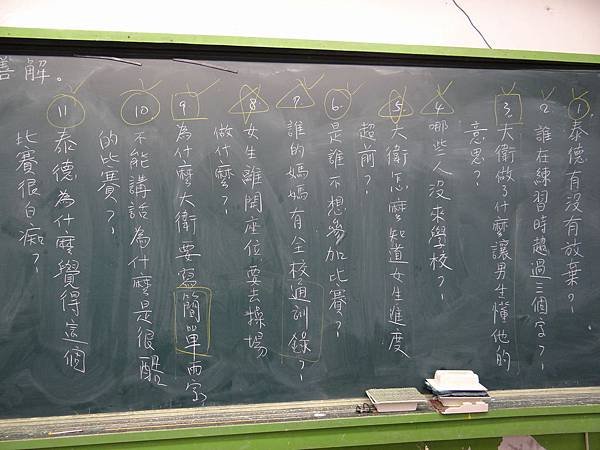 1. 泰德有沒有放棄？
2. 誰在練習時超過三個字？
3. 大衛做了什麼讓男生懂他的
意思？
4. 哪些人沒來學校？
5. 大衛怎麼知道女生進度
超前？
6. 是誰不想參加比賽？
7. 誰的媽媽有全校通訓錄？
8. 女生離開座位要去操場
做什麼？
9. 為什麼大衛要寫簡單兩字？
10. 不能講話為什麼是很酷
的比賽？
11. 泰德為什麼覺得這個
比賽很白痴？
善解。